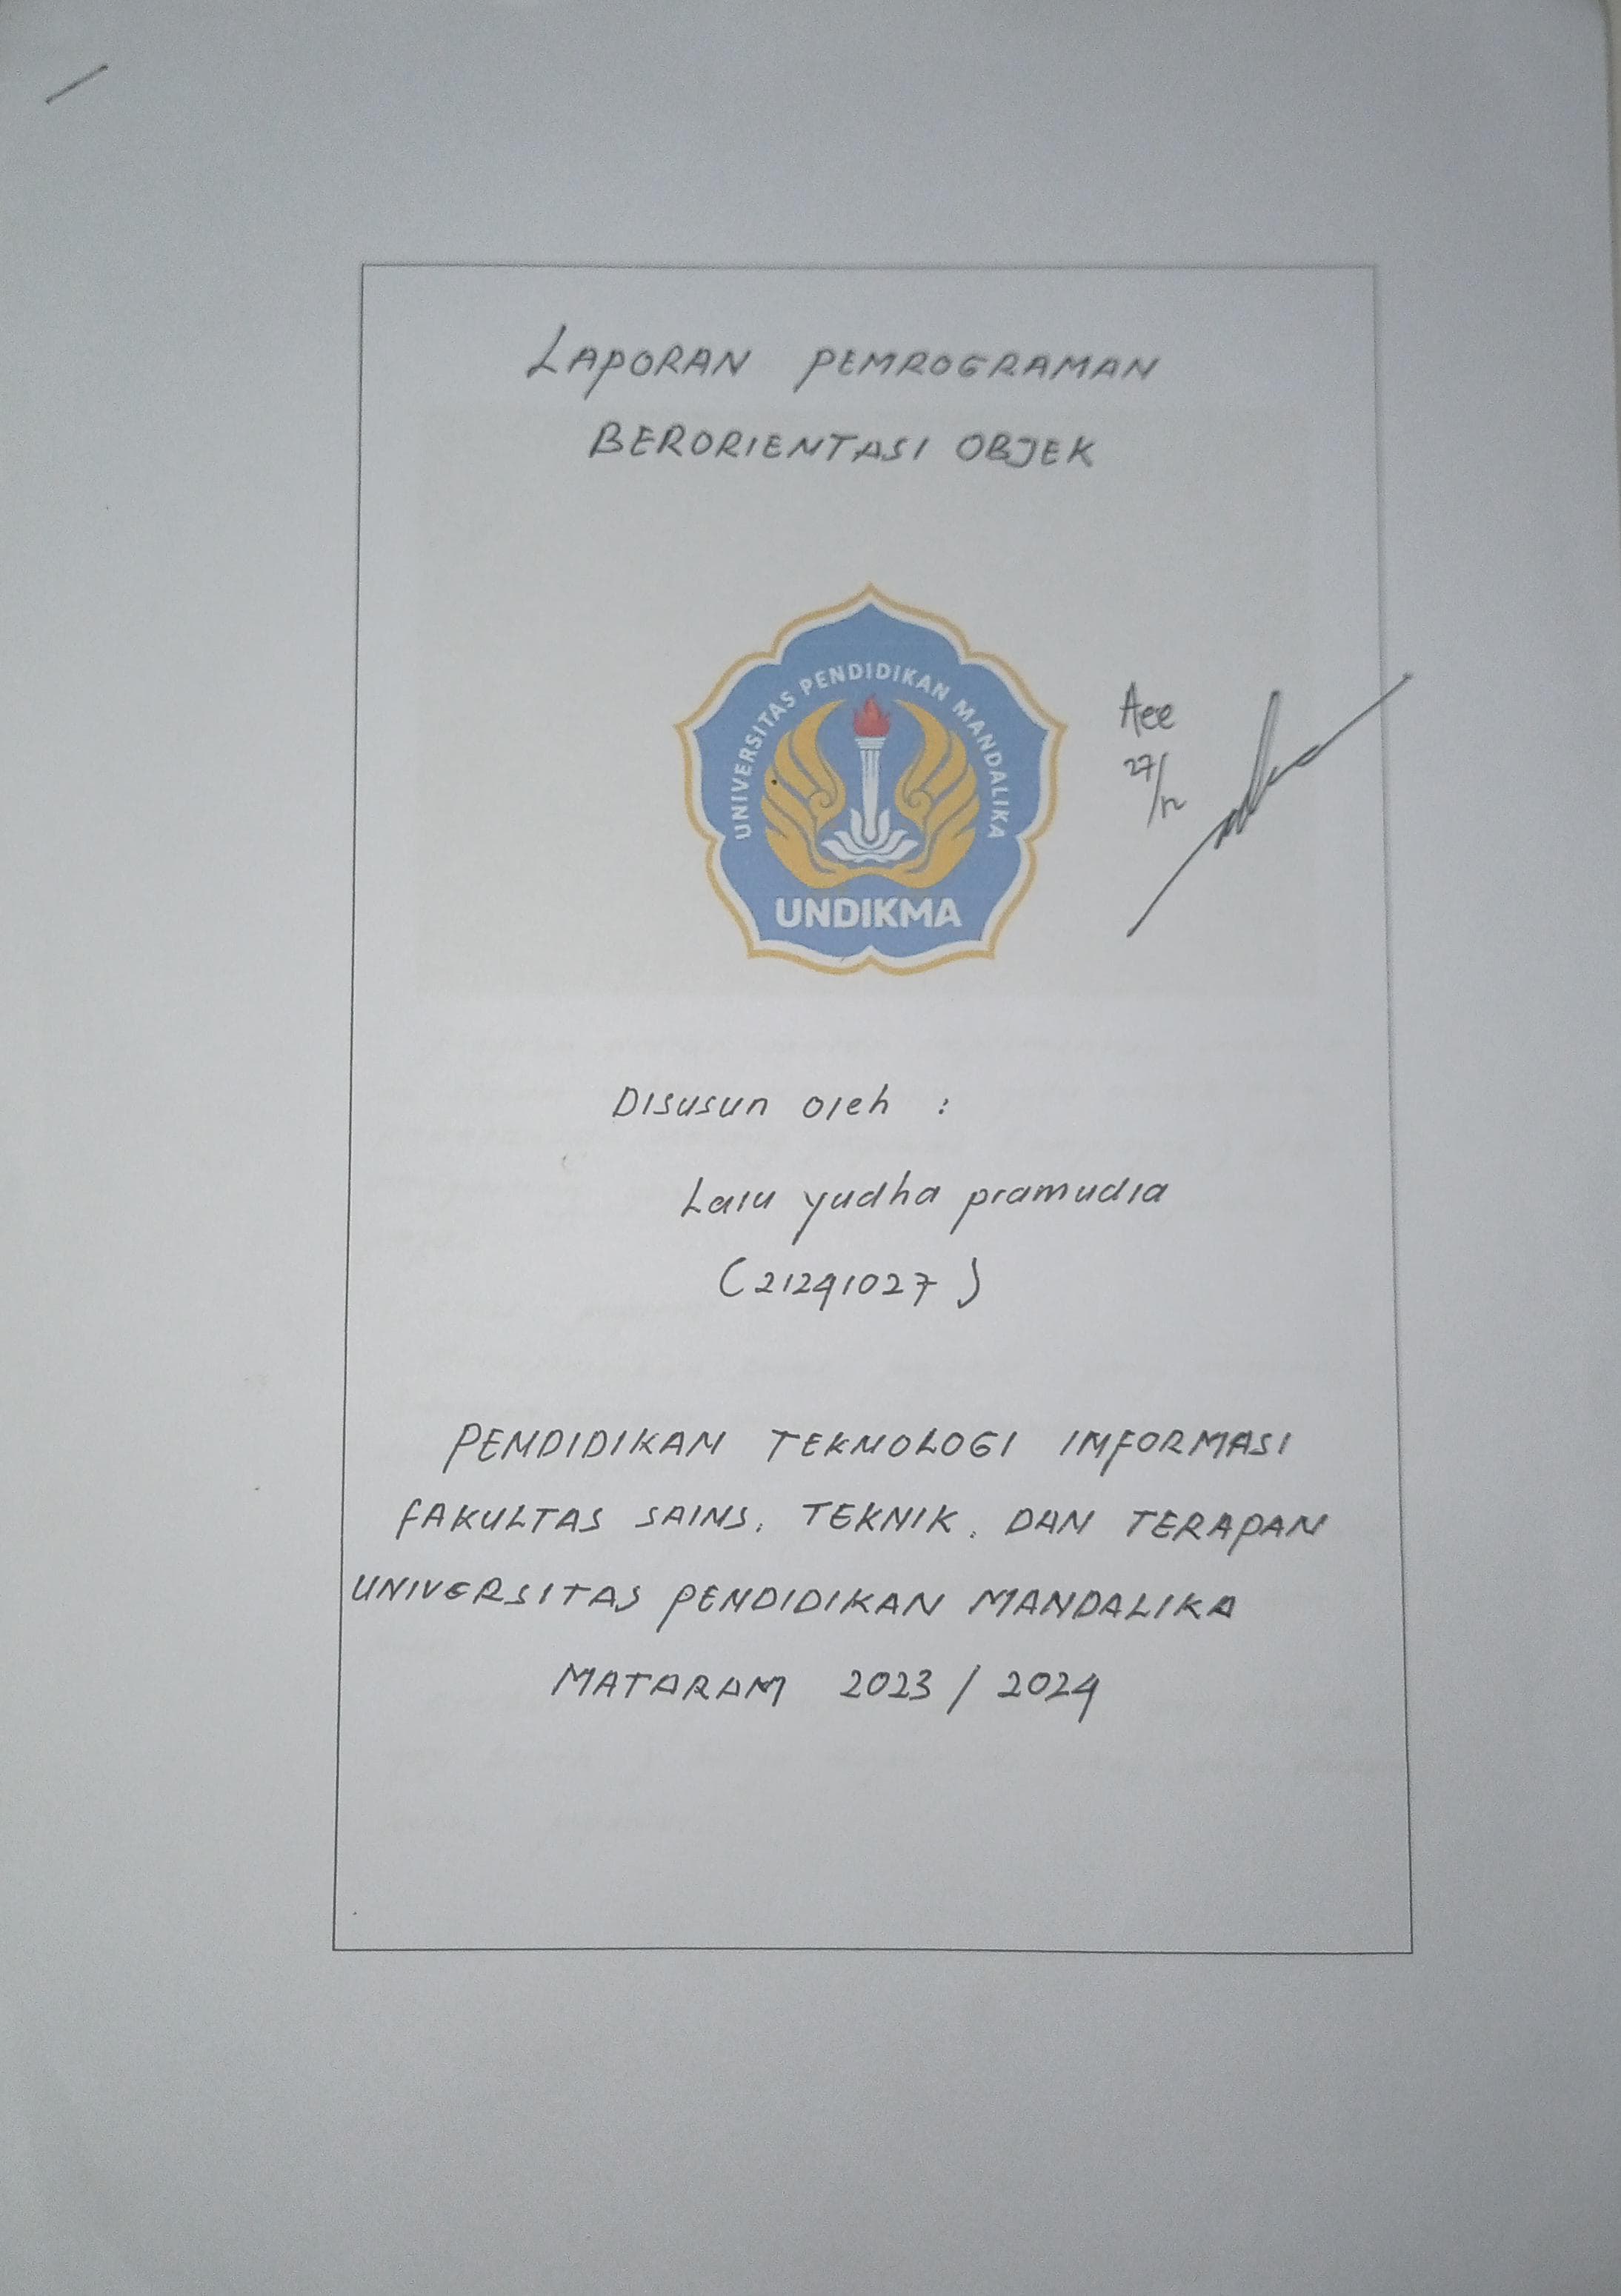 LAPORAN PEMROGRAMAN
BERORIENTASI OBJEK
UNIVERSITAS PENDIDIKAN MANDALIKA
UNDIKMA
Acc
27/12
Disusun oleh :
Lalu yudha pramudia
(21241027)
PENDIDIKAN TEKNOLOGI INFORMASI
FAKULTAS SAINS, TEKNIK, DAN TERAPAN
UNIVERSITAS PENDIDIKAN MANDALIKA
MATARAM 2023 / 2024